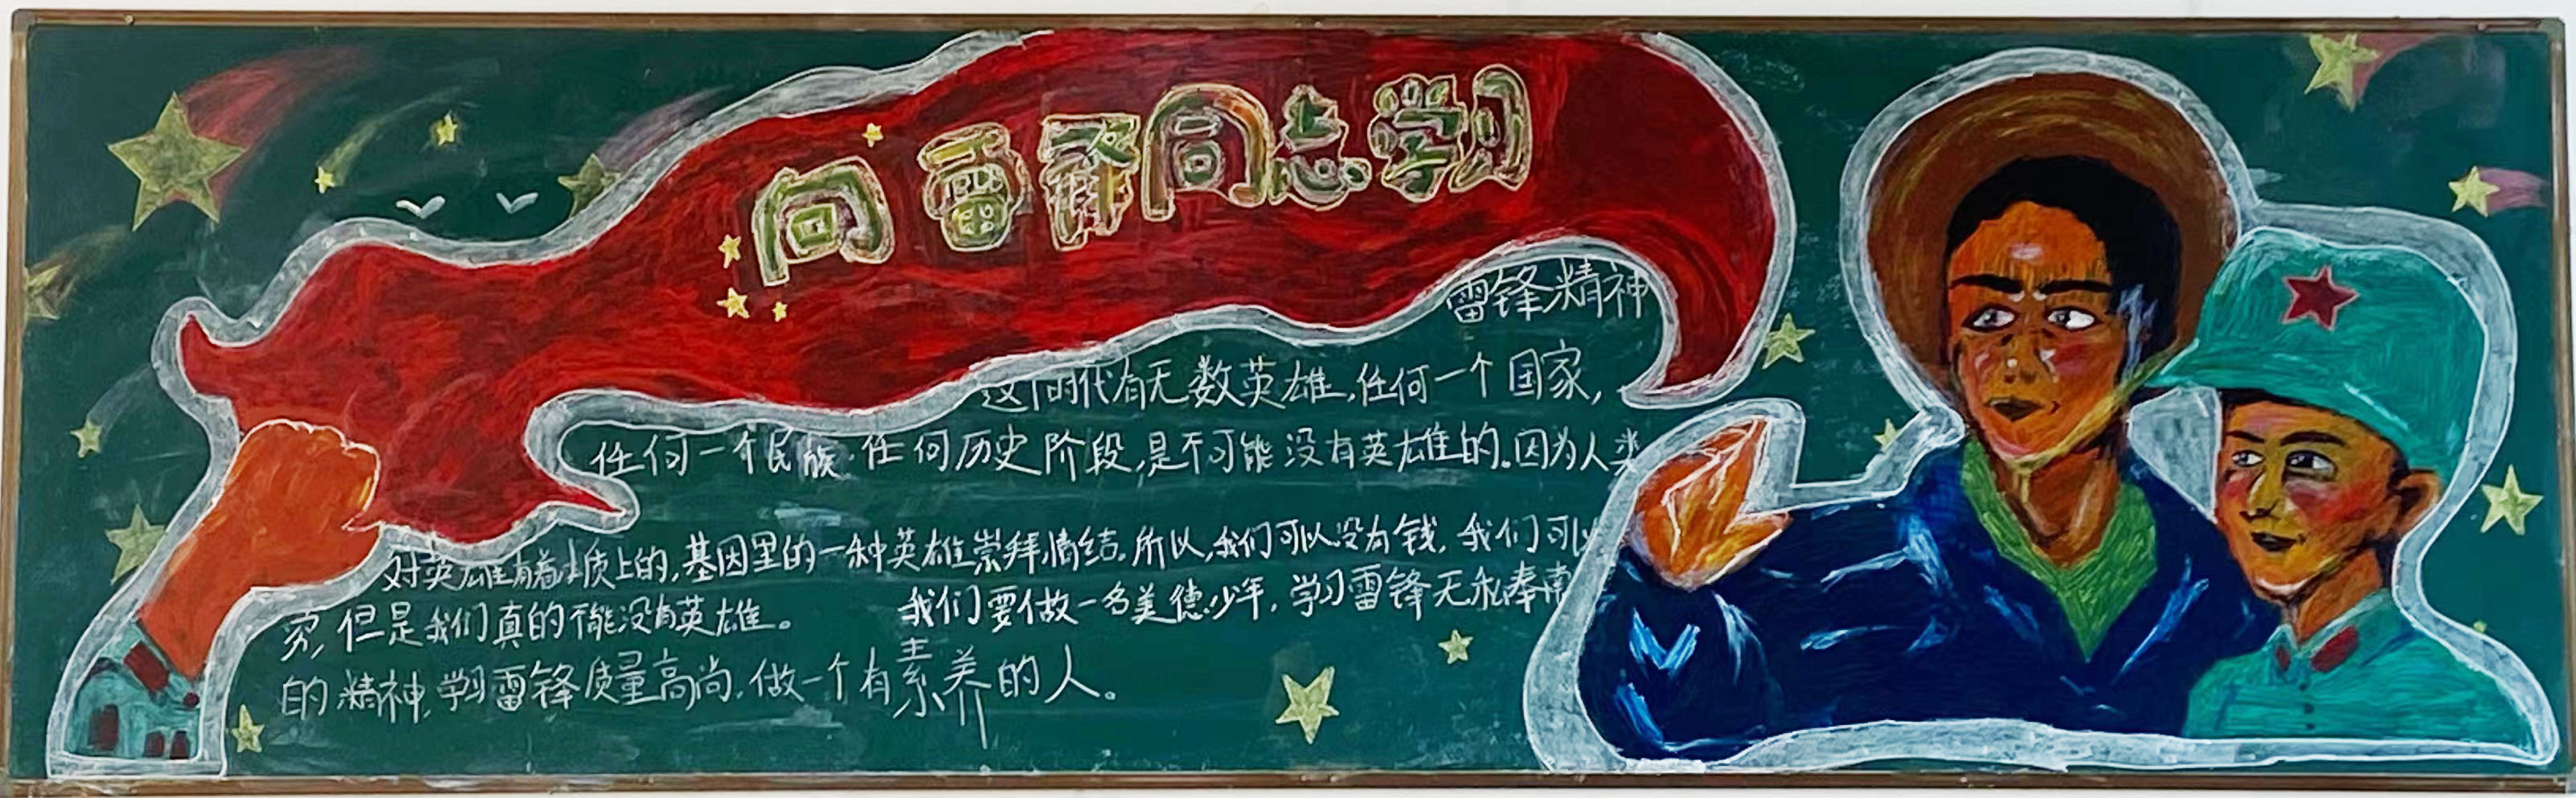 向雷锋同志学习
雷锋精神
这个时代有无数英雄,任何一个国家,
任何一个民族,任何历史阶段,是不可能没有英雄的。因为人类
对英雄有着本质上的,基因里的一种英雄崇拜情结。所以,我们可以没有钱,我们可以
穷,但是我们真的不能没有英雄。 我们要做一名美德少年,学习雷锋无私奉南
的精神,学习雷锋质量高尚,做一个有素养的人。